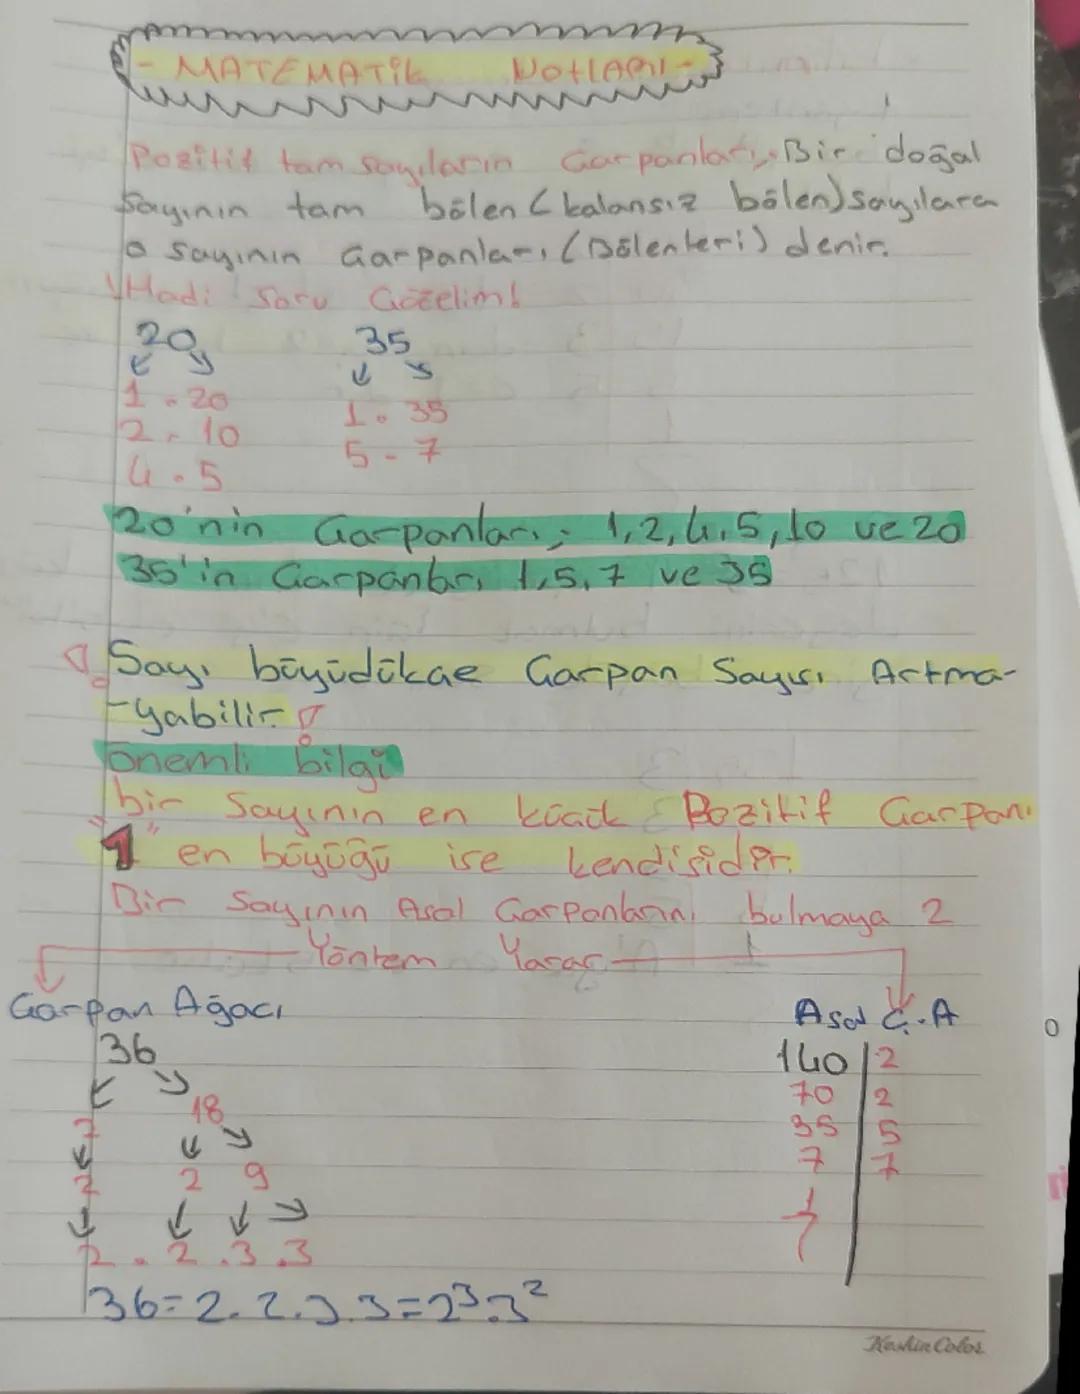 - MATEMATİK NOTLARI -
Pozitif tam sayıların Çarpanları; Bir doğal
sayının tam bölen (kalansız bölen) sayılara
o sayının Çarpanları (Bölenleri) denir.
! Hadi soru Çözelim!
20 35
1 . 20 1 . 35
2 . 10 5 . 7
4 . 5
20'nin Çarpanları; 1, 2, 4, 5, 10 ve 20
35'in Çarpanları 1, 5, 7 ve 35
! Sayı büyüdükçe Çarpan Sayısı Artma-
-yabilir !
önemli bilgi
bir Sayının en küçük Pozitif Çarpanı
"1" en büyüğü ise kendisidir.
Bir Sayının Asal Çarpanlarını bulmaya 2
Yöntem Yarar
Çarpan Ağacı Asal Ç.A
36 140 2
2 18 70 2
2 2 9 35 5
2 . 2 . 3 . 3 7 7
1
36 = 2 . 2 . 3 . 3 = 2³ . 3²
Keskin Color